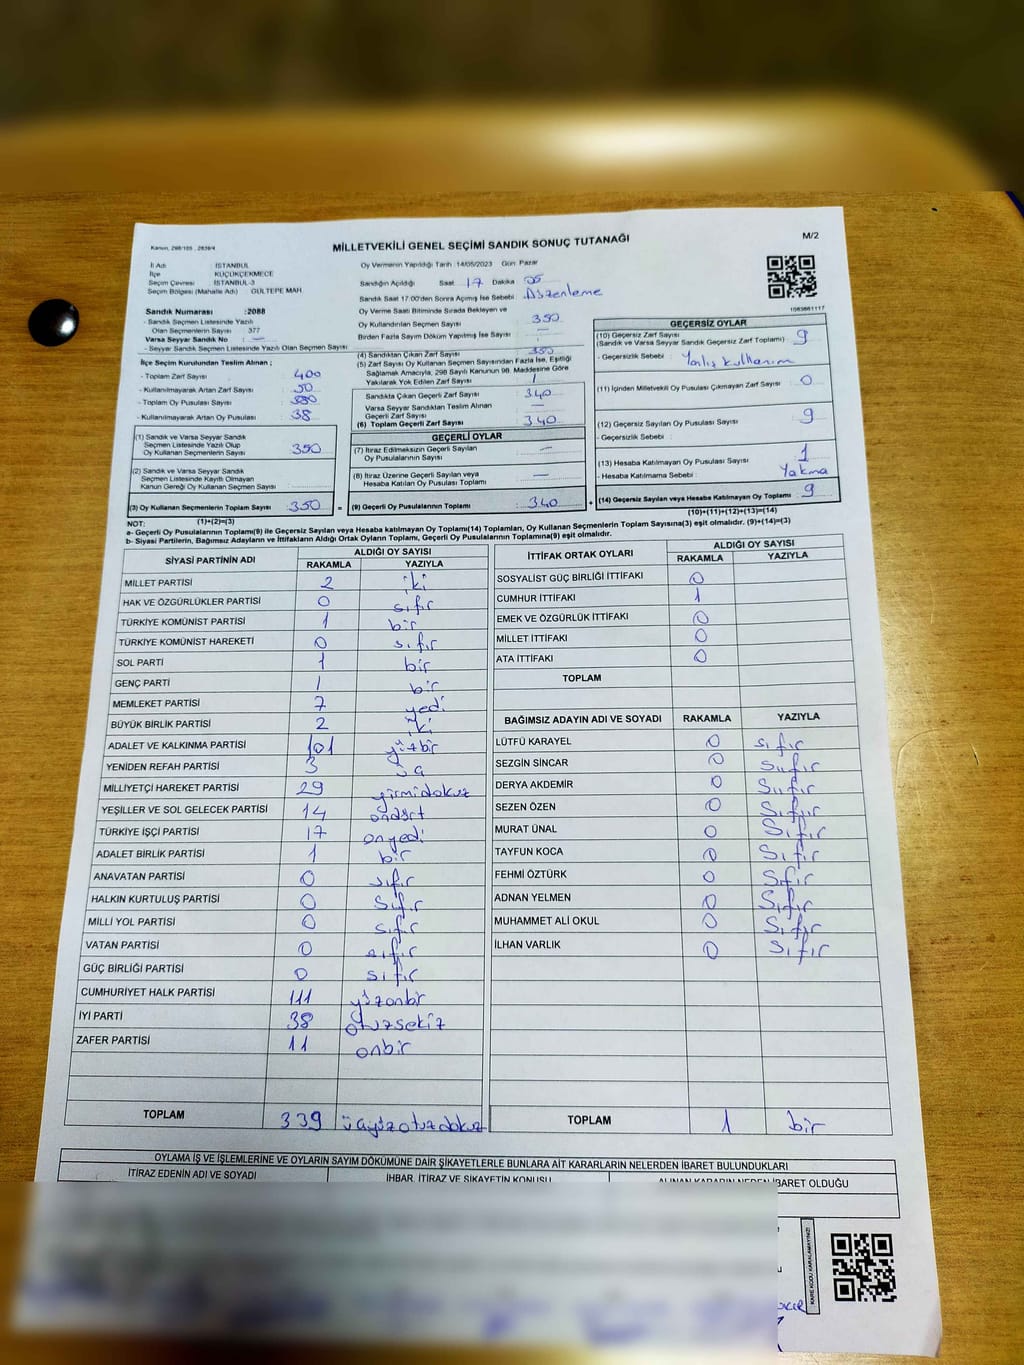 Kanun, 298/105 , 2839/4
MİLLETVEKİLİ GENEL SEÇİMİ SANDIK SONUÇ TUTANAĞI
M/2
İl Adı : İSTANBUL
İlçe : KÜÇÜKÇEKMECE
Seçim Çevresi : İSTANBUL-3
Seçim Bölgesi (Mahalle Adı) : GÜLTEPE MAH.
Oy Vermenin Yapıldığı Tarih :14/05/2023 Gün :Pazar
Sandığın Açıldığı Saat 17 Dakika 05
Sandık Saat 17:00'den Sonra Açımış İse Sebebi : Düzenleme
1063661117
Sandık Numarası :2088
- Sandık Seçmen Listesinde Yazılı
Olan Seçmenlerin Sayısı : 377
Varsa Seyyar Sandık No : —
- Seyyar Sandık Seçmen Listesinde Yazılı Olan Seçmen Sayısı
Oy Verme Saati Bitiminde Sırada Bekleyen ve
Oy Kullandırılan Seçmen Sayısı : 350
Birden Fazla Sayım Döküm Yapılmış İse Sayısı : —
İlçe Seçim Kurulundan Teslim Alınan ;
- Toplam Zarf Sayısı : 400
- Kullanılmayarak Artan Zarf Sayısı : 50
- Toplam Oy Pusulası Sayısı
- Kullanılmayarak Artan Oy Pusulası : 38
(1) Sandık ve Varsa Seyyar Sandık
Seçmen Listesinde Yazılı Olup
Oy Kullanan Seçmenlerin Sayısı : 350
(2) Sandık ve Varsa Seyyar Sandık
Seçmen Listesinde Kayıtlı Olmayan
Kanun Gereği Oy Kullanan Seçmen Sayısı :
(3) Oy Kullanan Seçmenlerin Toplam Sayısı : 350
(1)+(2)=(3)
(4) Sandıktan Çıkan Zarf Sayısı : 350
(5) Zarf Sayısı Oy Kullanan Seçmen Sayısından Fazla İse, Eşitliği
Sağlamak Amacıyla, 298 Sayılı Kanunun 98. Maddesine Göre
Yakılarak Yok Edilen Zarf Sayısı : 1
Sandıkta Çıkan Geçerli Zarf Sayısı : 340
Varsa Seyyar Sandıktan Teslim Alınan
Geçerli Zarf Sayısı : —
(6) Toplam Geçerli Zarf Sayısı : 340
GEÇERLİ OYLAR
(7) İtiraz Edilmeksizin Geçerli Sayılan
Oy Pusulalarının Sayısı : —
(8) İtiraz Üzerine Geçerli Sayılan veya
Hesaba Katılan Oy Pusulası Toplamı : —
= (9) Geçerli Oy Pusulalarının Toplamı : 340 +
GEÇERSİZ OYLAR
(10) Geçersiz Zarf Sayısı : 9
(Sandık ve Varsa Seyyar Sandık Geçersiz Zarf Toplamı)
- Geçersizlik Sebebi : Yanlış kullanım
(11) İçinden Milletvekili Oy Pusulası Çıkmayan Zarf Sayısı : 0
(12) Geçersiz Sayılan Oy Pusulası Sayısı : 9
- Geçersizlik Sebebi :
(13) Hesaba Katılmayan Oy Pusulası Sayısı : 1
- Hesaba Katılmama Sebebi : Yakma
(14) Geçersiz Sayılan veya Hesaba Katılmayan Oy Toplamı : 9
(10)+(11)+(12)+(13)=(14)
NOT:
a- Geçerli Oy Pusulalarının Toplamı(9) ile Geçersiz Sayılan veya Hesaba katılmayan Oy Toplamı(14) Toplamları, Oy Kullanan Seçmenlerin Toplam Sayısına(3) eşit olmalıdır. (9)+(14)=(3)
b- Siyasi Partilerin, Bağımsız Adayların ve İttifakların Aldığı Ortak Oyların Toplamı, Geçerli Oy Pusulalarının Toplamına(9) eşit olmalıdır.
SİYASİ PARTİNİN ADI ALDIĞI OY SAYISI
RAKAMLA YAZIYLA
MİLLET PARTİSİ 2 iki
HAK VE ÖZGÜRLÜKLER PARTİSİ 0 sıfır
TÜRKİYE KOMÜNİST PARTİSİ 1 bir
TÜRKİYE KOMÜNİST HAREKETİ 0 sıfır
SOL PARTİ 1 bir
GENÇ PARTİ 1 bir
MEMLEKET PARTİSİ 7 yedi
BÜYÜK BİRLİK PARTİSİ 2 iki
ADALET VE KALKINMA PARTİSİ 101 yüzbir
YENİDEN REFAH PARTİSİ 3
MİLLİYETÇİ HAREKET PARTİSİ 29 yirmidokuz
YEŞİLLER VE SOL GELECEK PARTİSİ 14 ondört
TÜRKİYE İŞÇİ PARTİSİ 17 onyedi
ADALET BİRLİK PARTİSİ 1 bir
ANAVATAN PARTİSİ 0 sıfır
HALKIN KURTULUŞ PARTİSİ 0 sıfır
MİLLİ YOL PARTİSİ 0 sıfır
VATAN PARTİSİ 0 sıfır
GÜÇ BİRLİĞİ PARTİSİ 0 sıfır
CUMHURİYET HALK PARTİSİ 111 yüzonbir
İYİ PARTİ 38 otuzsekiz
ZAFER PARTİSİ 11 onbir
TOPLAM 339 üçyüzotuzdokuz
İTTİFAK ORTAK OYLARI ALDIĞI OY SAYISI
RAKAMLA YAZIYLA
SOSYALİST GÜÇ BİRLİĞİ İTTİFAKI 0
CUMHUR İTTİFAKI 1
EMEK VE ÖZGÜRLÜK İTTİFAKI 0
MİLLET İTTİFAKI 0
ATA İTTİFAKI 0
TOPLAM
BAĞIMSIZ ADAYIN ADI VE SOYADI RAKAMLA YAZIYLA
LÜTFÜ KARAYEL 0 sıfır
SEZGİN SİNCAR 0 sıfır
DERYA AKDEMİR 0 sıfır
SEZEN ÖZEN 0 sıfır
MURAT ÜNAL 0 sıfır
TAYFUN KOCA 0 sıfır
FEHMİ ÖZTÜRK 0 sıfır
ADNAN YELMEN 0 sıfır
MUHAMMET ALİ OKUL 0 sıfır
İLHAN VARLIK 0 sıfır
TOPLAM 1 bir
OYLAMA İŞ VE İŞLEMLERİNE VE OYLARIN SAYIM DÖKÜMÜNE DAİR ŞİKAYETLERLE BUNLARA AİT KARARLARIN NELERDEN İBARET BULUNDUKLARI
İTİRAZ EDENİN ADI VE SOYADI İHBAR, İTİRAZ VE ŞİKAYETİN KONUSU ALINAN KARARIN NEDEN İBARET OLDUĞU
KARE KODU KARALAMAYINIZ!